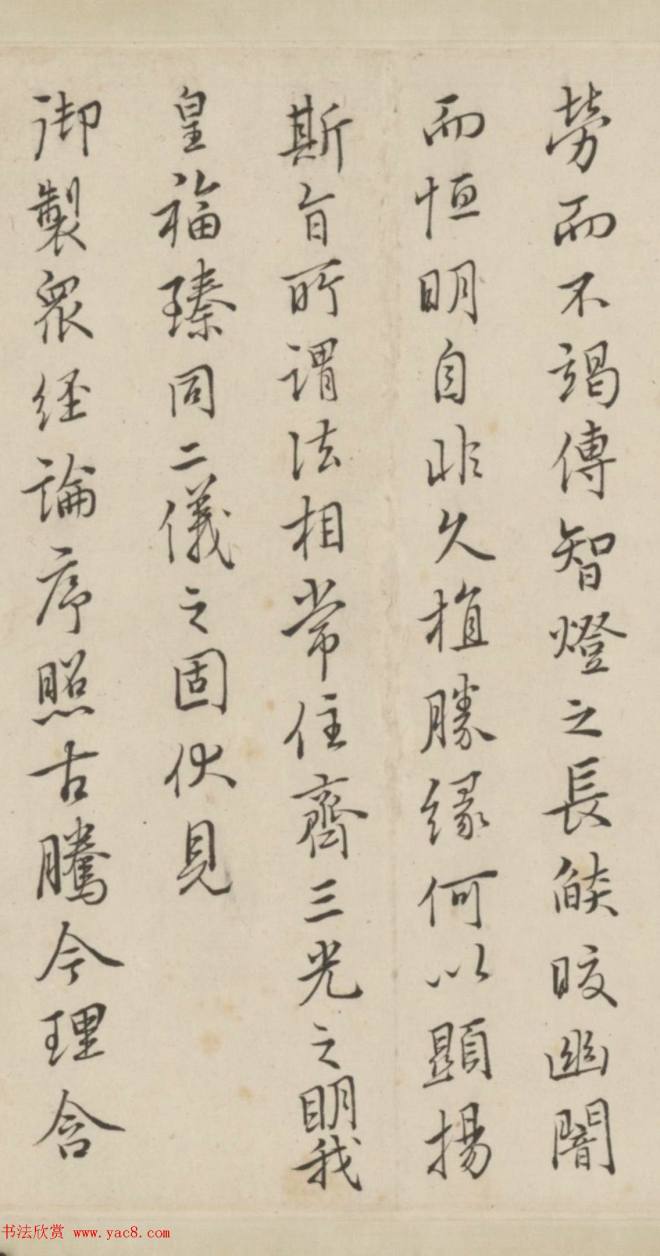 勞而不竭傳智燈之長燄皎幽闇
而恒明自非久植勝緣何以顯揚
斯旨所謂法相常住齊三光之明我
皇福臻同二儀之固伏見
御製眾經論序照古騰今理含
书法欣赏 www.yac8.com